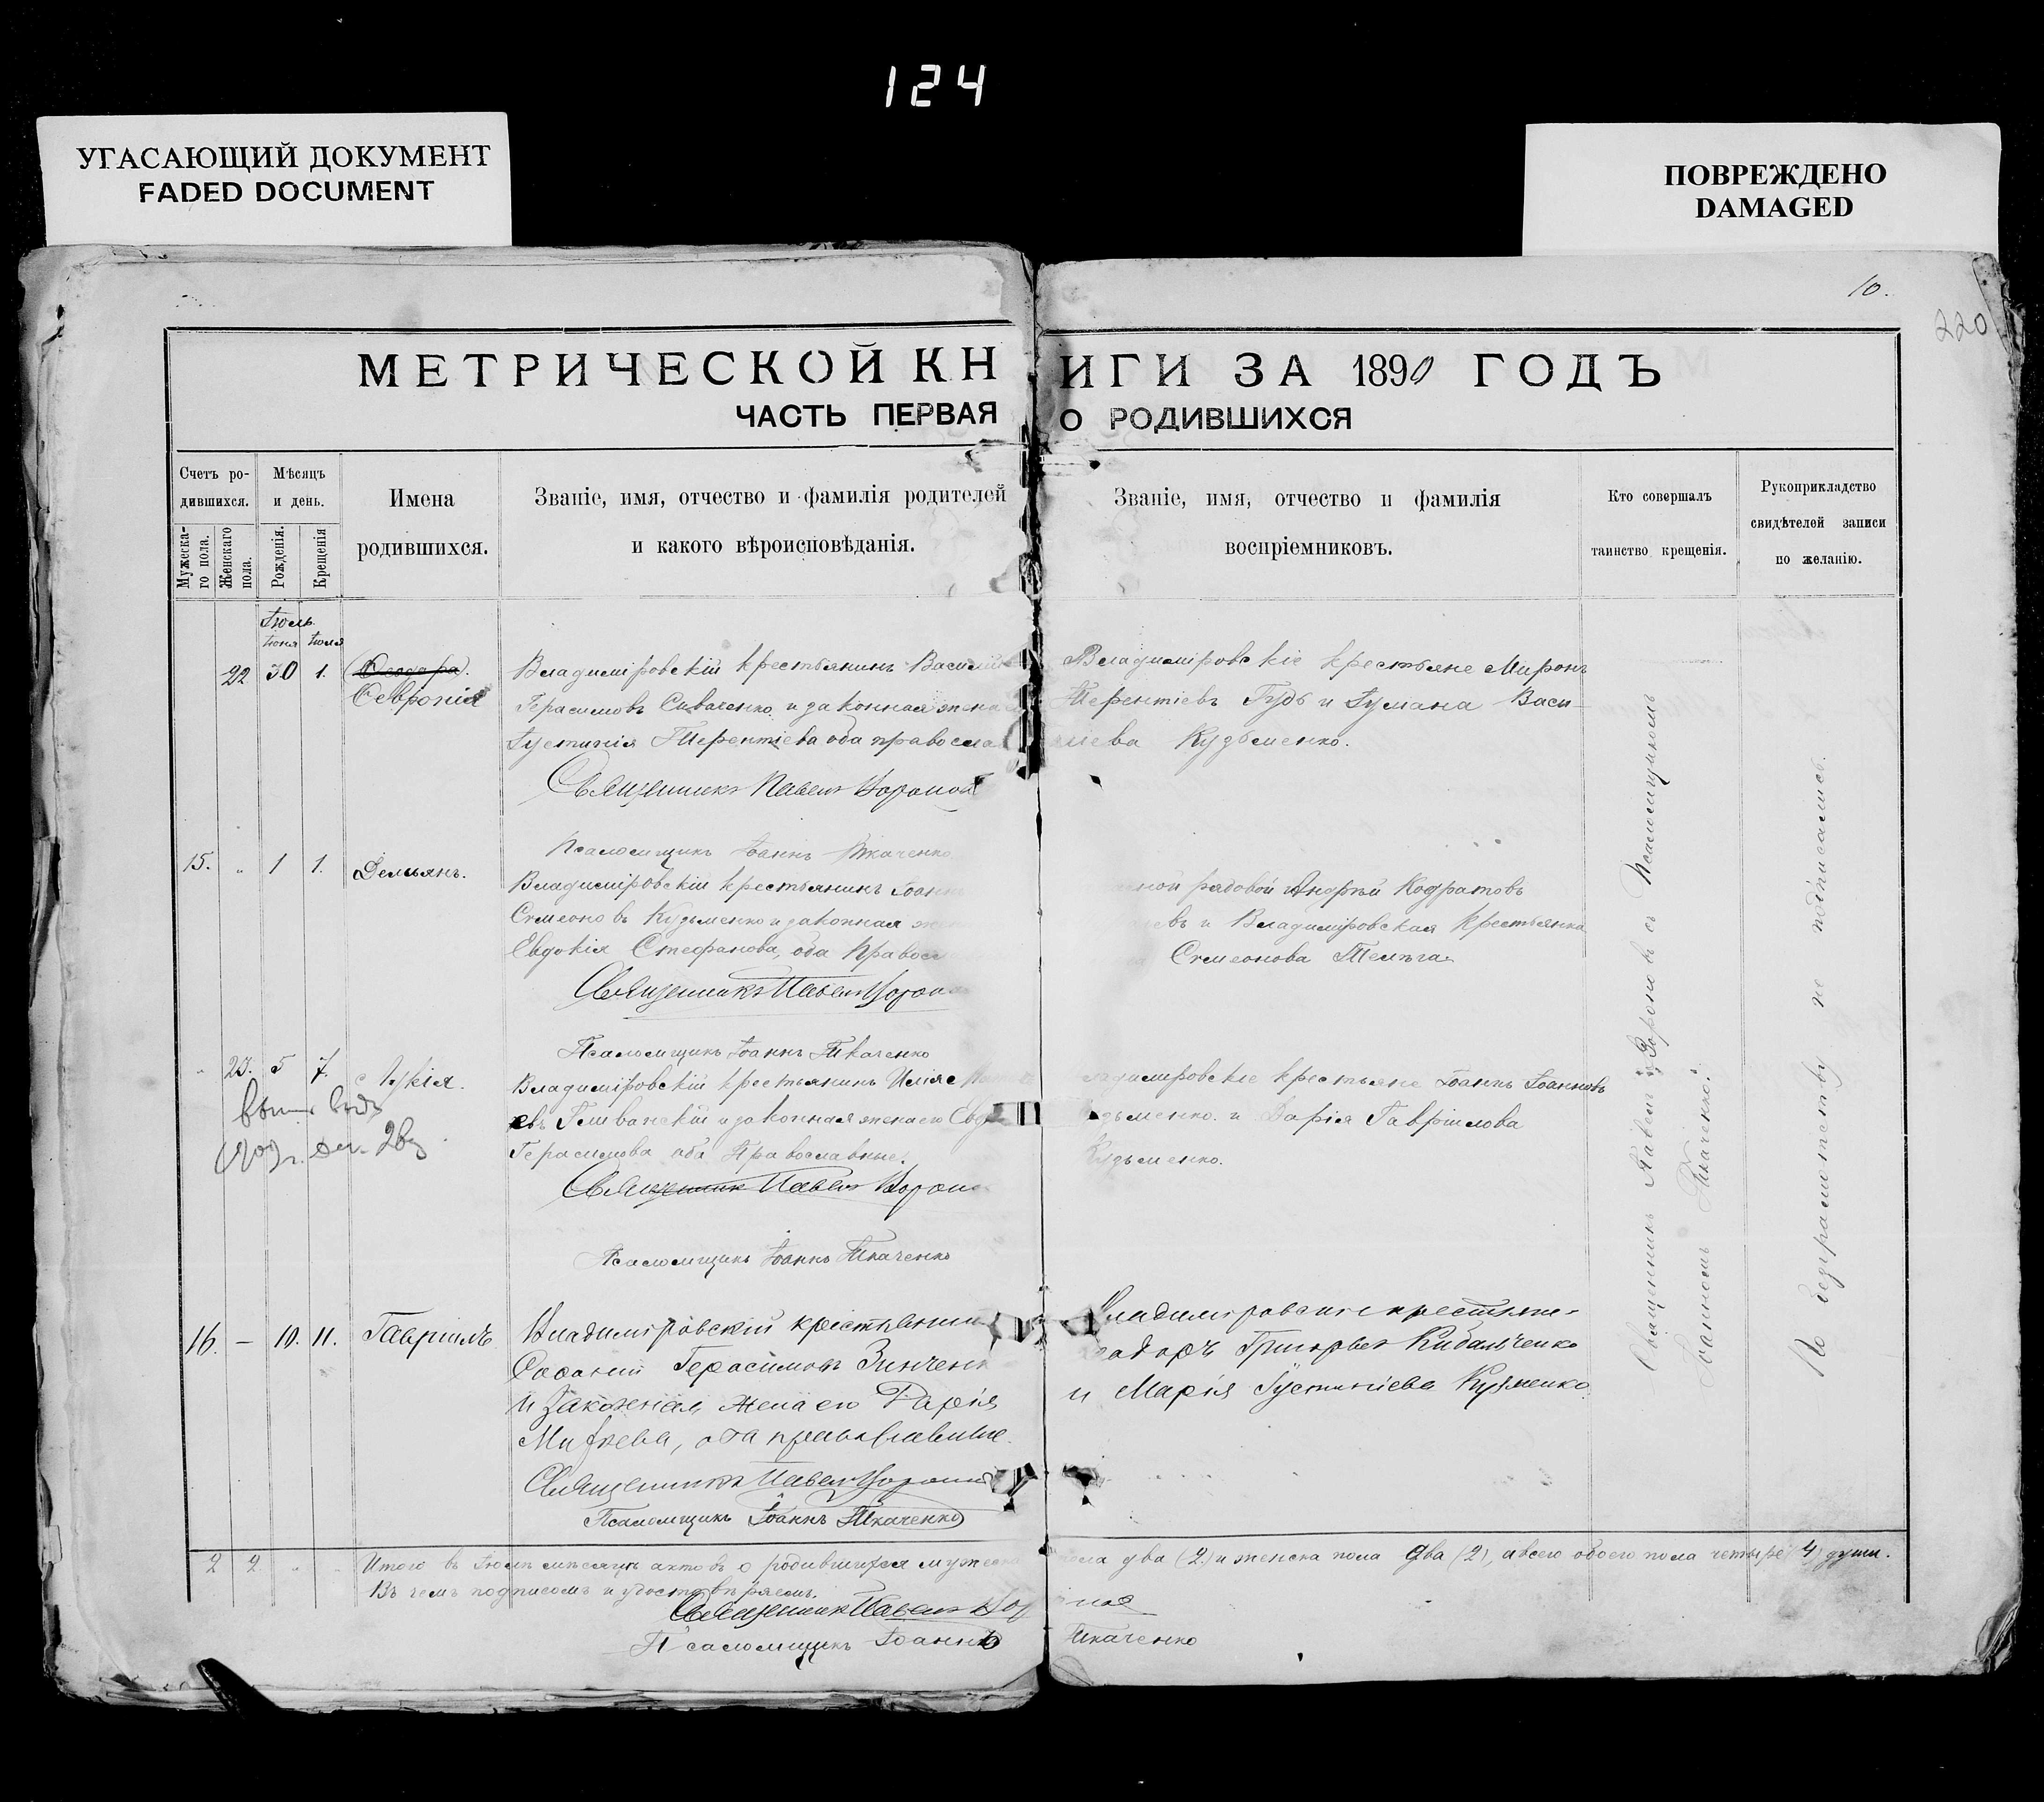 124
УГАСАЮЩИЙ ДОКУМЕНТ
FADED DOCUMENT
ПОВРЕЖДЕНО
DAMAGED
10.
220
МЕТРИЧЕСКОЙ КН
ИГИ ЗА 1890 ГОДЪ
ЧАСТЬ ПЕРВАЯ
О РОДИВШИХСЯ
Счетъ ро-
дившихся.
Мужеска-
го пола.
Женскаго
пола.
Мѣсяцъ
и день.
Рожденія.
Крещенія
Имена
родившихся.
Званіе, имя, отчество и фамилія родителей
и какого вѣроисповѣданія.
Званіе, имя, отчество и фамилія
воспріемниковъ.
Кто совершалъ
таинство крещенія.
Рукоприкладство
свидѣтелей записи
по желанію.
Іюль
Іюня Іюля
22 30 1. Ѳеодора.
Ѳевронія
Владиміровскій крестьянинъ Василій
Герасимовъ Сиваченко и законная жена
Іустинія Терентіева оба правосла
Священникъ Павелъ Вороной
Псаломщикъ Іоаннъ Ткаченко
Владиміровскіе крестьяне Миронъ
Терентіевъ Гудь и Іуліана Васи-
ліева Кузьменко.
15. „ 1 1. Демьянъ.
Владиміровскій крестьянинъ Іоаннъ
Симеоновъ Кузьменко и законная
Евдокія Стефанова, оба Правосл
Священникъ Павелъ Ворон
Псаломщикъ Іоаннъ Ткаченко
рядовой Андрей Кодратовъ
евъ и Владиміровская Крестьянка
Симеонова Телѣга
23. 5 7. Лукія.
1909 г.
Владиміровскій крестьянинъ Илія
евъ и законная жена его Евд
Герасимова оба Православные.
Священник Павелъ Ворон
Псаломщикъ Іоаннъ Ткаченко
адиміровскіе крестьяне Іоаннъ Іоанновъ
зьменко и Дарія Гавріилова
Кузьменко.
16. — 10. 11. Гавріилъ
Владиміровскій крестьянин
Герасимовъ Зинченк
и законная жена его Дарія
оба православные.
Священникъ Павелъ Вороной
Псаломщикъ Іоаннъ Ткаченко
Владиміровскіе крестьяне
еодоръ Григорьев Кибальченко
и Марія Іустиніева Кузменко
Священникъ Павелъ Вороновъ съ Псаломщикомъ
Іоанномъ Ткаченко.
По безграмотству не подписались.
2 2 „ „ Итого въ Іюлѣ мѣсяцѣ актовъ о родившихся мужеска
пола два (2) и женска пола два (2), а всего обоего пола четыре (4) души.
Въ чемъ подписомъ и удостовѣряемъ.
Священник Павелъ Вор
ной
Псаломщикъ Іоаннъ
Ткаченко